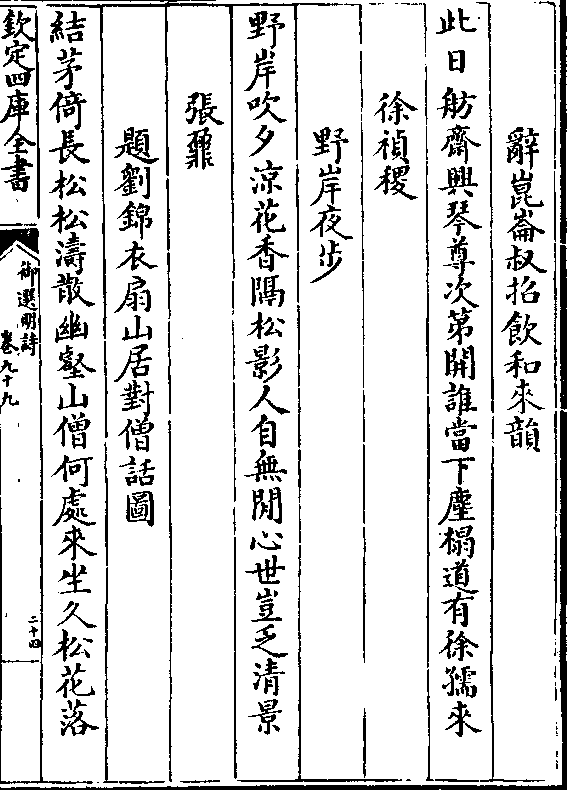 辭崑崙叔招飲和來韻
此日舫齋興琴尊次第開誰當下塵榻道有徐孺來
徐禎稷
野岸夜步
野岸吹夕涼花香隔松影人自無閒心世豈乏清景
張鼐
題劉錦衣扇山居對僧話圖
結茅倚長松松濤散幽壑山僧何處來坐久松花落
欽定四庫全書
御選明詩
卷九十九
二十四